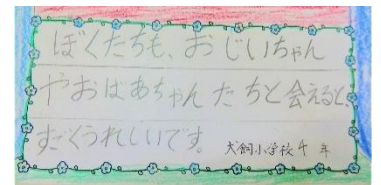 ぼくたちも、おじいちゃん
やおばあちゃんたちと会えると、
すごくうれしいです。
犬飼小学校4年